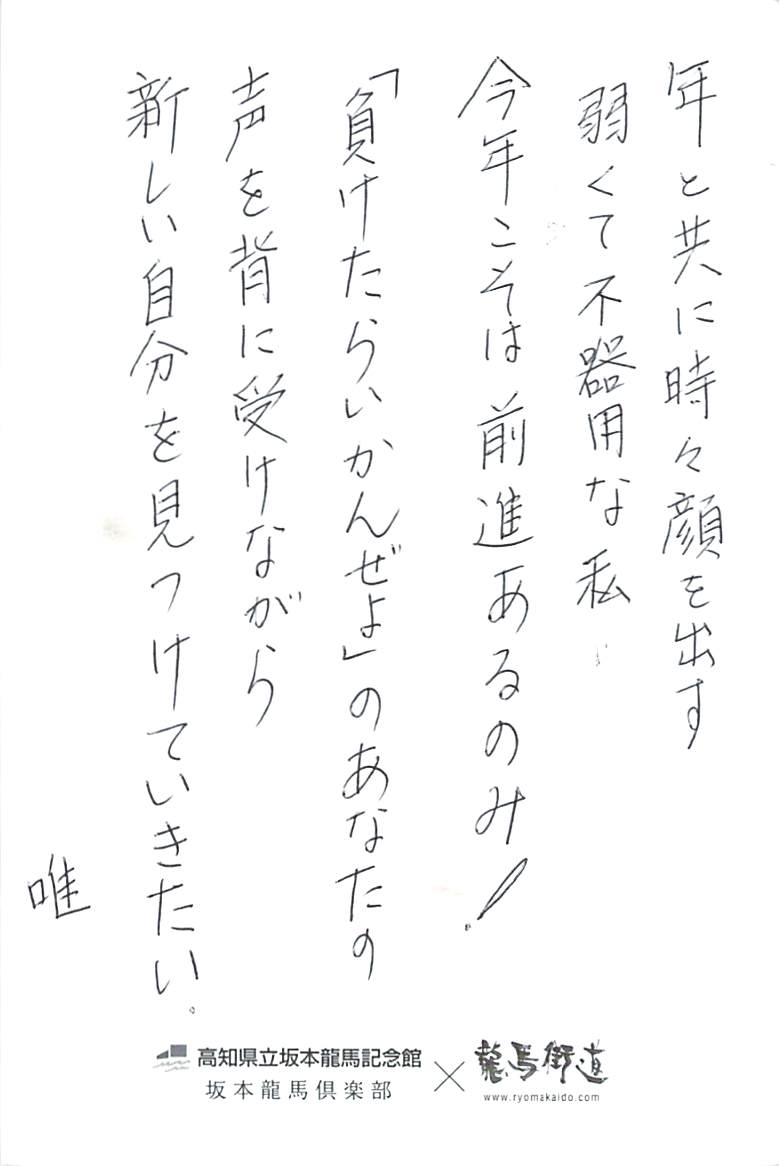 年と共に時々顔を出す
弱くて不器用な私
今年こそは前進あるのみ！
「負けたらいかんぜよ」のあなたの
声を背に受けながら
新しい自分を見つけていきたい。
唯
高知県立坂本龍馬記念館
坂本龍馬倶楽部
×
龍馬街道
www.ryomakaido.com